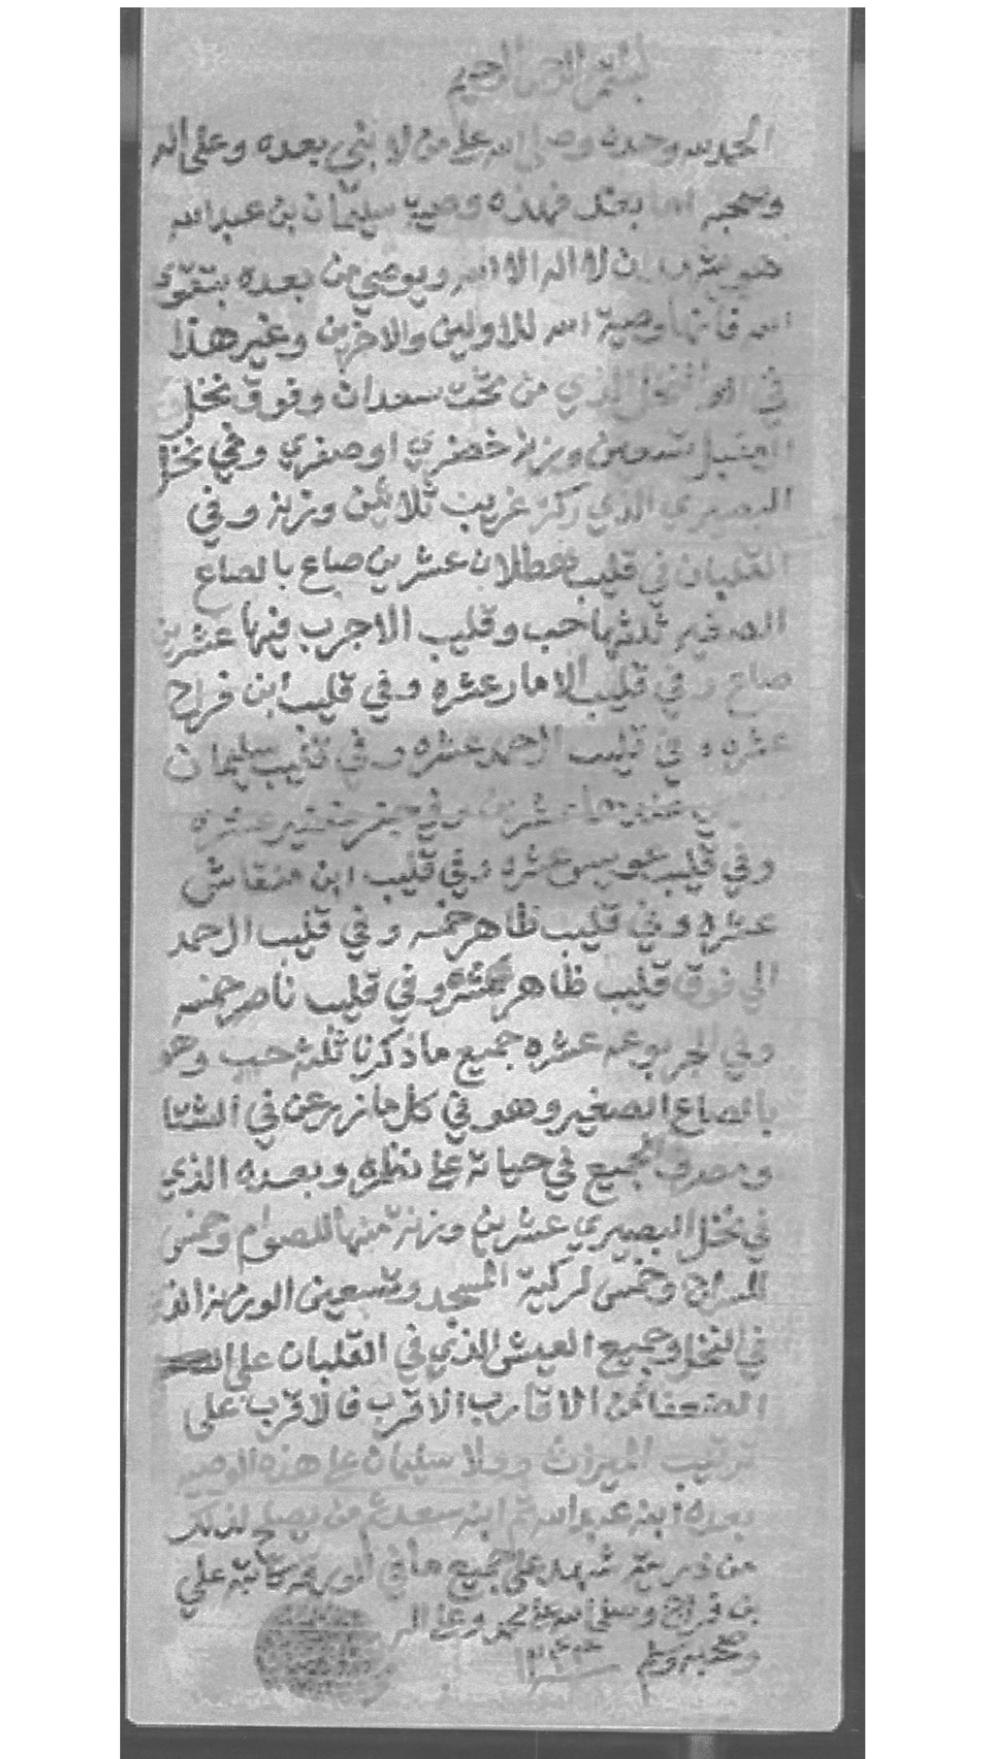 بسم الله الرحمن الرحيم
الحمد لله وحده وصلى الله على من لا نبي بعده وعلى اله
وصحبه اما بعد فهذه وصية سليمان بن عبدالله
ان لا اله الا الله ويوصي من بعده بتقوى
الله فانها وصية الله للاولين والاخرين وغير هذا
في النخل الذي من تحت سعدان وفوق نخل
تسعين وزنة خضري او صفري وفي نخل
البصيري الذي ركز غريب ثلاثين وزنة وفي
القلبان في قليب عشرين صاع بالصاع
الصغير ثلثها حب وقليب الاجرب فيها عشرين
صاع وفي قليب عشره وفي قليب ابن فراج
عشره وفي قليب الحمد عشره وفي قليب سليمان
عشرين وفي جفر عشره
وفي قليب عويس عشره وفي قليب ابن منقاش
عشره وفي قليب ظاهر خمسه وفي قليب الحمد
الي فوق قليب ظاهر عشره وفي قليب ناصر خمسه
وفي الجربوعه عشره جميع ما ذكرنا ثلثه حب وهو
بالصاع الصغير وهو في كل ما زرعن في الشتا
ومصرف الجميع في حياته على نظره وبعده الذي
في نخل البصيري عشرين وزنة منها للصوام وخمس
للسراج وخمس لركية المسجد وتسعين الوزنه الذي
في النخل وجميع العيش الذي في القلبان على
الضعفا من الاقارب الاقرب فالاقرب على
ترتيب الميراث وولا سليمان على هذه الوصيه
بعده ابنه عبدالله ثم ابنه سعد ثم من يصلح لذلك
من ذريته شهد على جميع ما في الورقه كاتبه علي
بن فراج وصلى الله على محمد وعلى اله
وصحبه وسلم